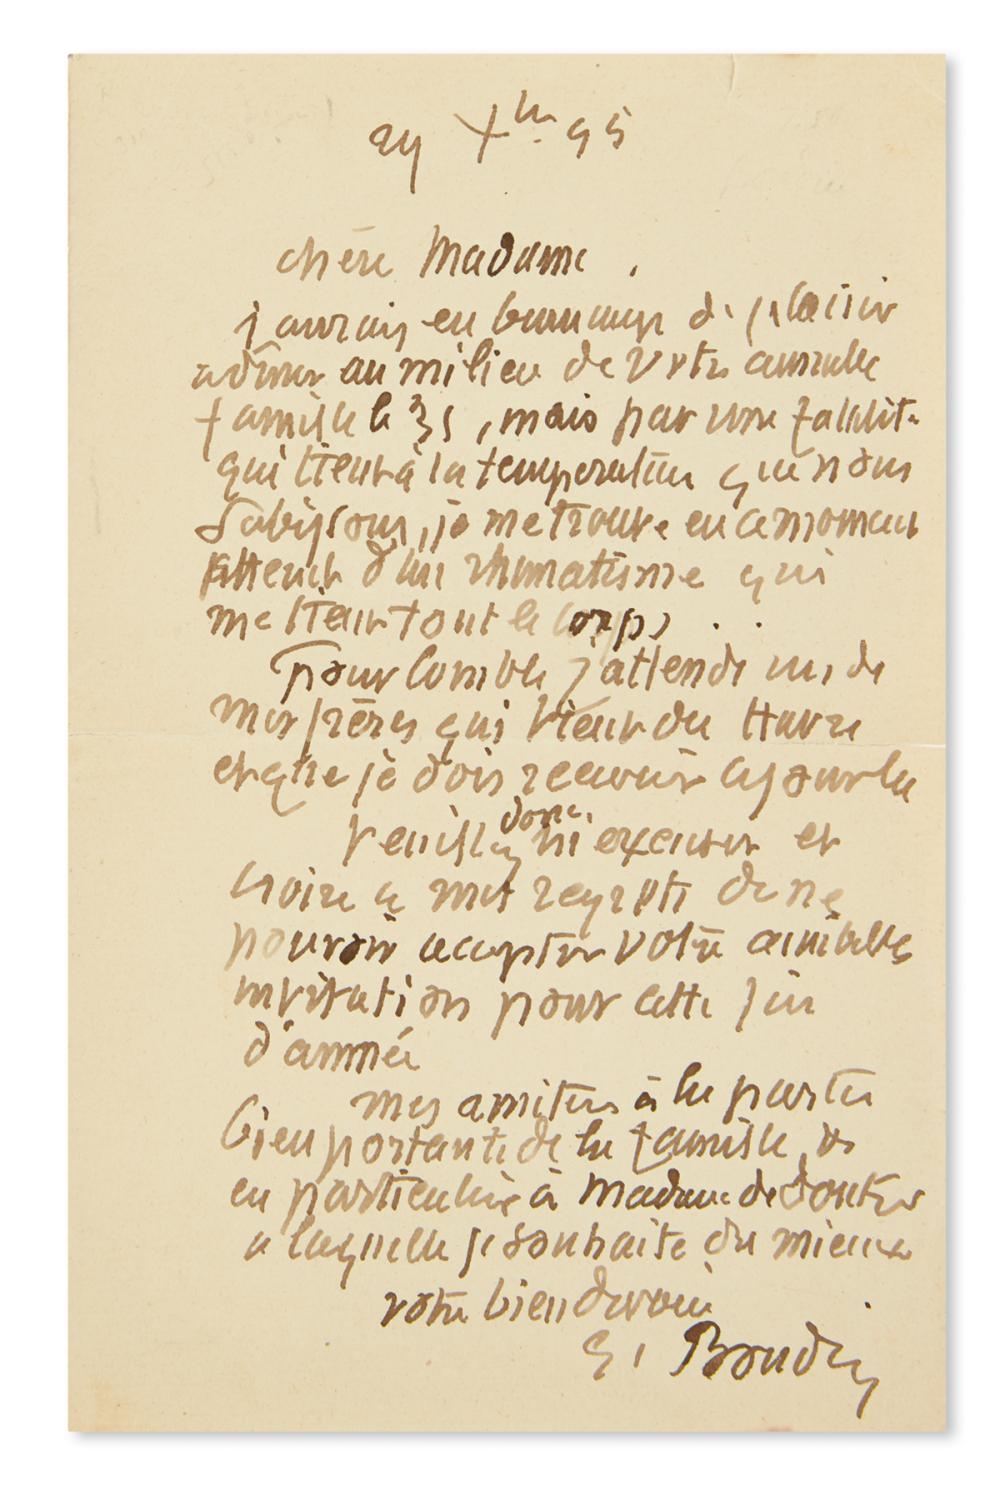 29 Xbre 95
chère Madame.
j'aurais eu beaucoup de plaisir
a dîner au milieu de votre aimable
famille le 31, mais par une fatalité
qui tient à la température que nous
subissons, je me trouve en ce moment
atteint d'un rhumatisme qui
me tient tout le corps . .
Pour comble j'attends un de
mes frères qui vient du Havre
et que je dois recevoir ces jours là
Veuillez donc m'excuser et
croire a mes regrets de ne
pouvoir accepter votre aimable
invitation pour cette fin
d'année
mes amitiés à la partie
bien portante de la famille, et
en particulier à Madame de
a laquelle je souhaite du mieux
votre bien dévoué
E. Boudin